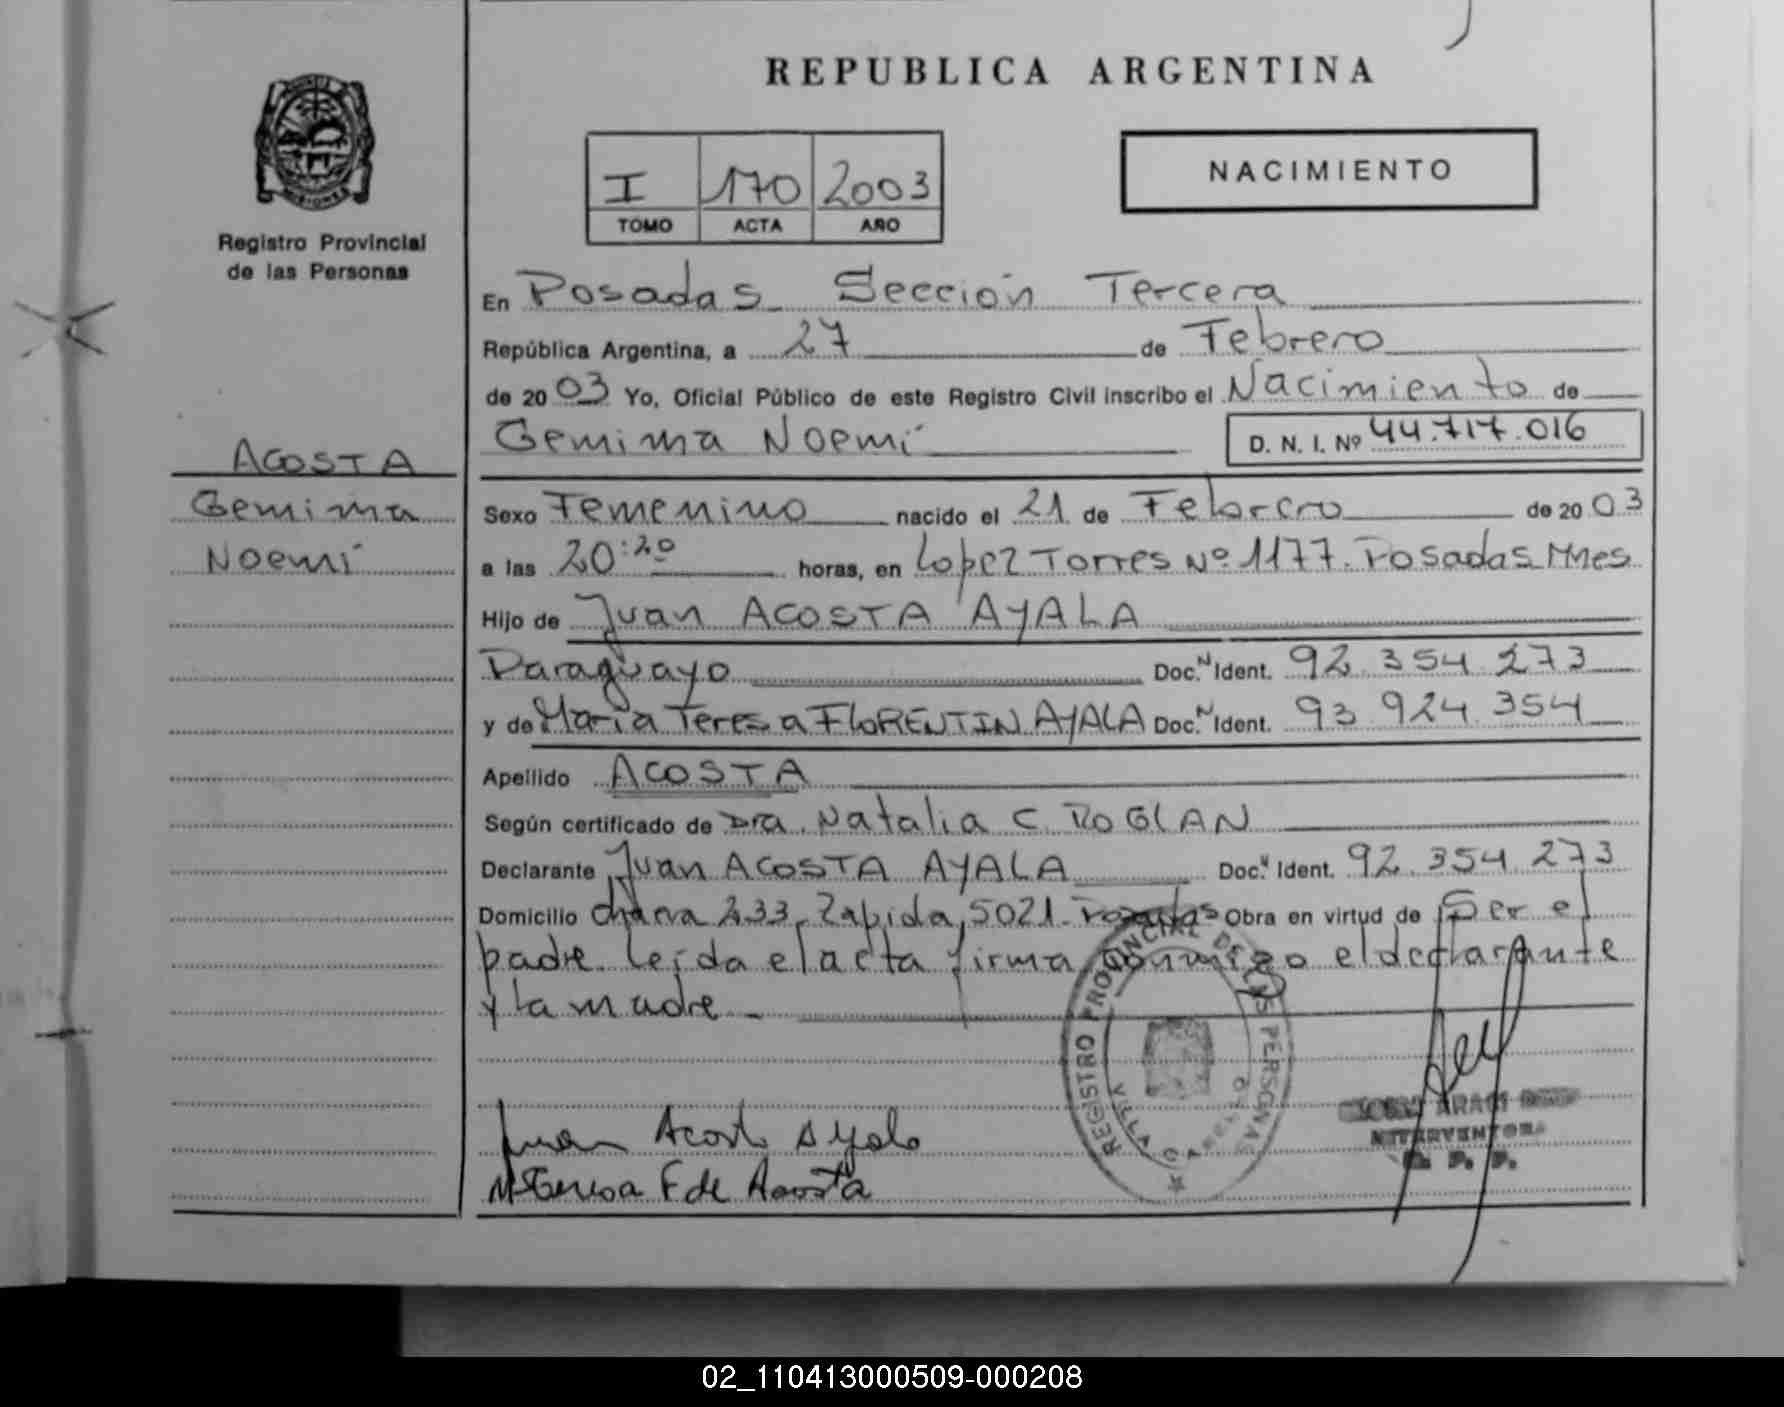 REPUBLICA ARGENTINA
NACIMIENTO
I 170 2003
TOMO ACTA AÑO
Registro Provincial
de las Personas
En Posadas Sección Tercera
República Argentina, a 27 de Febrero
de 2003 Yo, Oficial Público de este Registro Civil inscribo el Nacimiento de
Gemima Noemí D. N. I. Nº 44.717.016
ACOSTA
Gemima
Noemí
Sexo Femenino nacido el 21 de Febrero de 2003
a las 20:20 horas, en Lopez Torres Nº 1177. Posadas Mnes
Hijo de Juan ACOSTA AYALA
Paraguayo Doc. Ident. 92.354.273
y de Maria Teresa FLORENTIN AYALA Doc. Ident. 93.924.354
Apellido ACOSTA
Según certificado de Dra. Natalia C. ROGLAN
Declarante Juan ACOSTA AYALA Doc. Ident. 92.354.273
Domicilio chacra 233, Zapiola, 5021. Posadas Obra en virtud de Ser el
padre. Leída el acta firma conmigo el declarante
y la madre
REGISTRO PROVINCIAL DE LAS PERSONAS
Juan Acosta Ayala
Mª Teresa F de Acosta
INTERVENTORA
R. P. P.
02_110413000509-000208